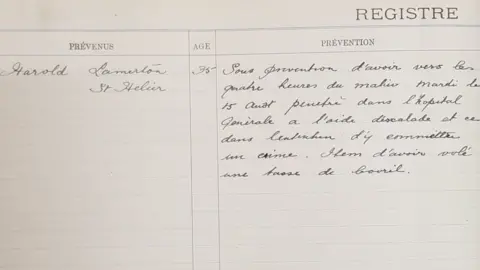 REGISTRE
PRÉVENUS AGE PRÉVENTION
Harold Lamerton 35 Sous prévention d'avoir vers les
St Helier quatre heures du matin Mardi le
15 Aout penetré dans l'hopital
Générale a l'aide d'escalade et ce
dans l'intention d'y commettre
un crime. Item d'avoir volé
une tasse de bovril.